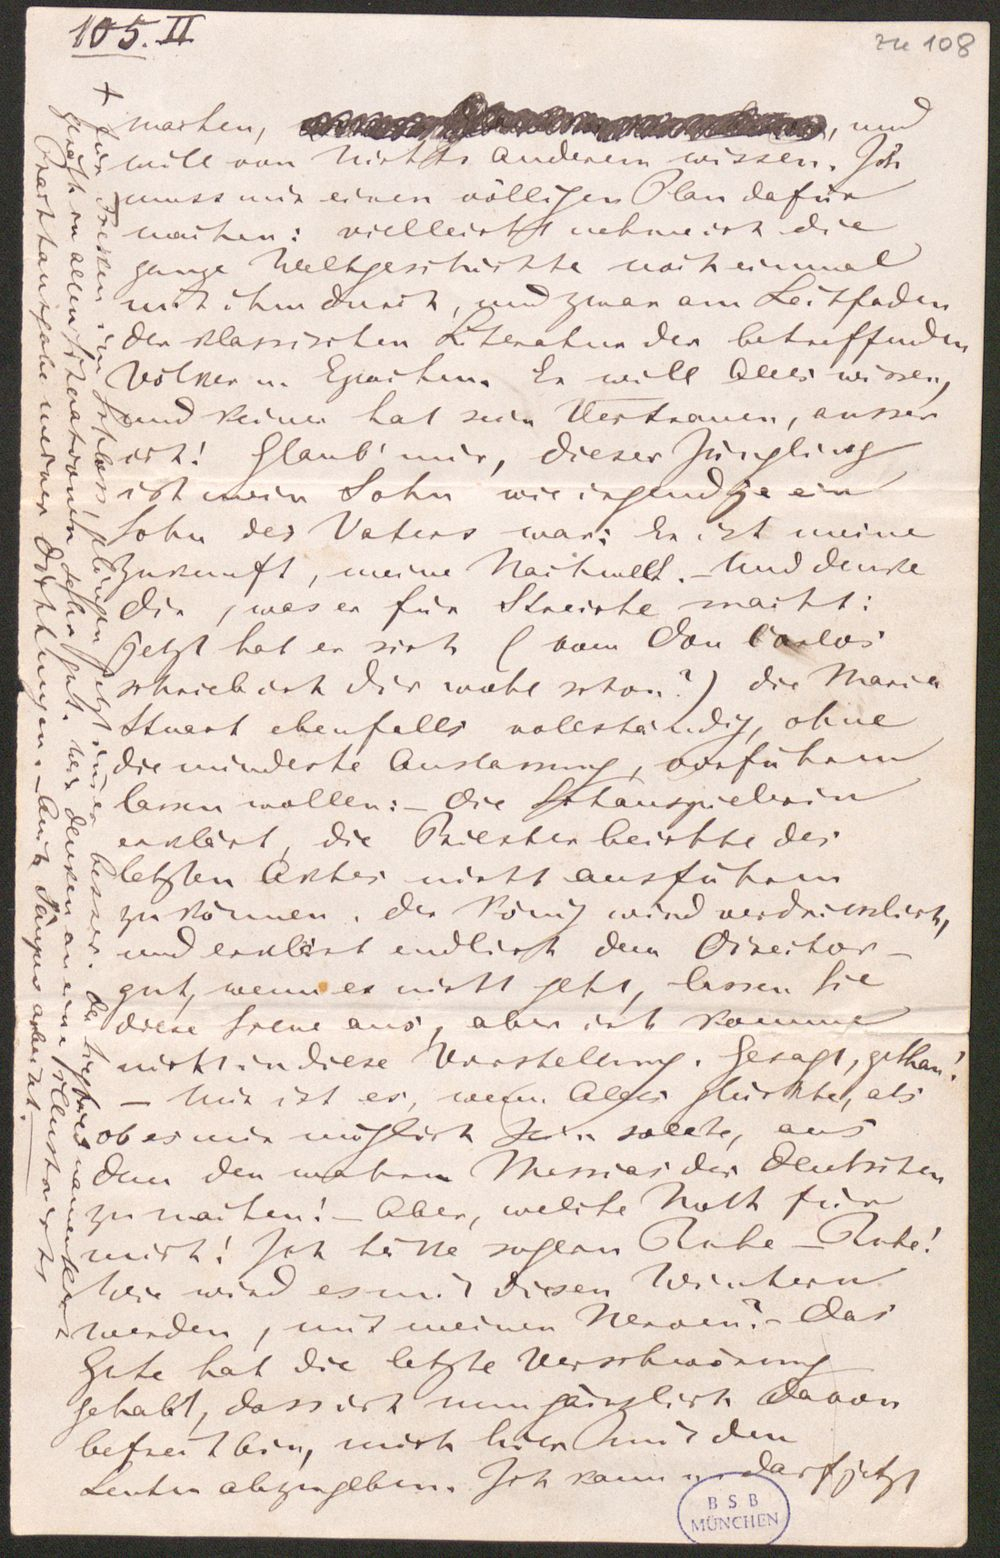 105. II
zu 108
machen, , und
will von Nichts Anderem wissen. Ich
muss mir einen völligen Plan dafür
machen: vielleicht nehme ich die
ganze Weltgeschichte noch einmal
mit ihm durch, und zwar am Leitfaden
der klassischen Literatur der betreffenden
Völker u. Epochen. Er will Alles wissen,
und keiner hat sein Vertrauen, ausser
ich! Glaub' mir, dieser Jüngling
ist mein Sohn wie irgend je ein
Sohn des Vaters war: Er ist meine
Zukunft, meine Nachwelt. – Und denke
Dir, was er für Streiche macht:
jetzt hat er sich (vom Don Carlos
schrieb ich Dir wohl schon?) die Maria
Stuart ebenfalls vollständig, ohne
die mindeste Auslassung, vorführen
lassen wollen: – die Schauspielerin
erklärt, die Priesterbeichte des
letzten Aktes nicht ausführen
zu können. Der König wird verdriesslich,
und erklärt endlich dem Director –
gut, wenn es nicht geht, lassen Sie
diese Scene aus, aber ich komme
nicht in diese Vorstellung. Gesagt, gethan!
– Mir ist es, wenn Alles glückte, als
ob es mir möglich sein sollte, aus
dem den wahren Messias der Deutschen
zu machen! – Aber, welche Noth für
mich! Ich hätte so gern Ruhe – Ruhe!
Wie wird es mit diesen Wintern
werden, mit meinen Nerven? – Das
Gute hat die letzte Verschwörung
gehabt, dass ich nun gänzlich davon
befreit bin, mich hier mit den
Leuten abzugeben. Ich kann u. darf jetzt
+ für Fresken im Schloss Jetzt immer besser. Der Siegfried namentlich
geräth in allen Situationen sehr gut. Wir denken an eine illustrirte
Prachtausgabe meiner Dichtungen. – Auch
BSB
MÜNCHEN